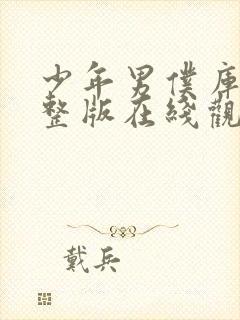 少年男僕庫
整版在綫觀
戴兵